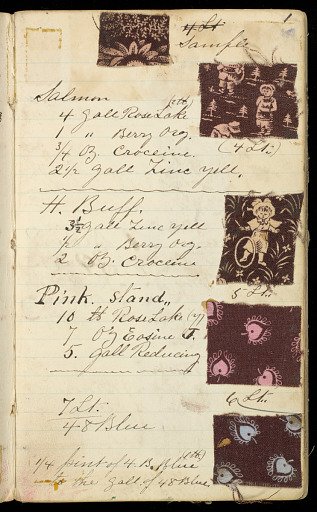 1
4 Lt
Sample
Salmon
4 Gall Rose Lake (th)
1 " Berry Org.
3/4 Oz. Croceine
2 1/2 Gall Zinc Yell.
(4 Lt.)
H. Buff.
3 1/2 Gall Zinc Yell
1/2 " Berry Org.
2 Oz. Croceine
5 Lt.
Pink. Stand.,
10 lb Rose Lake (y)
7 Oz Eosine J.
5. Gall Reducing
6 Lt.
7 Lt.
48 Blue
1/4 pint of 4 B. Blue (th)
to the Gall of 48 Blue